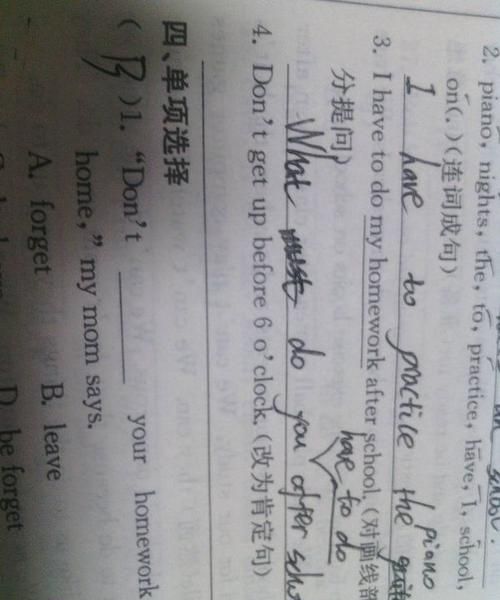 2. piano, nights, the, to, practice, have, I, school,
on(.)(连词成句)
I have to practice the piano
3. I have to do my homework after school.(对画线部
分提问)
have to do
What do you after scho
4. Don't get up before 6 o'clock.(改为肯定句)
四、单项选择
(B)1. "Don't ______ your homework
home," my mom says.
A. forget B. leave
D. be forget